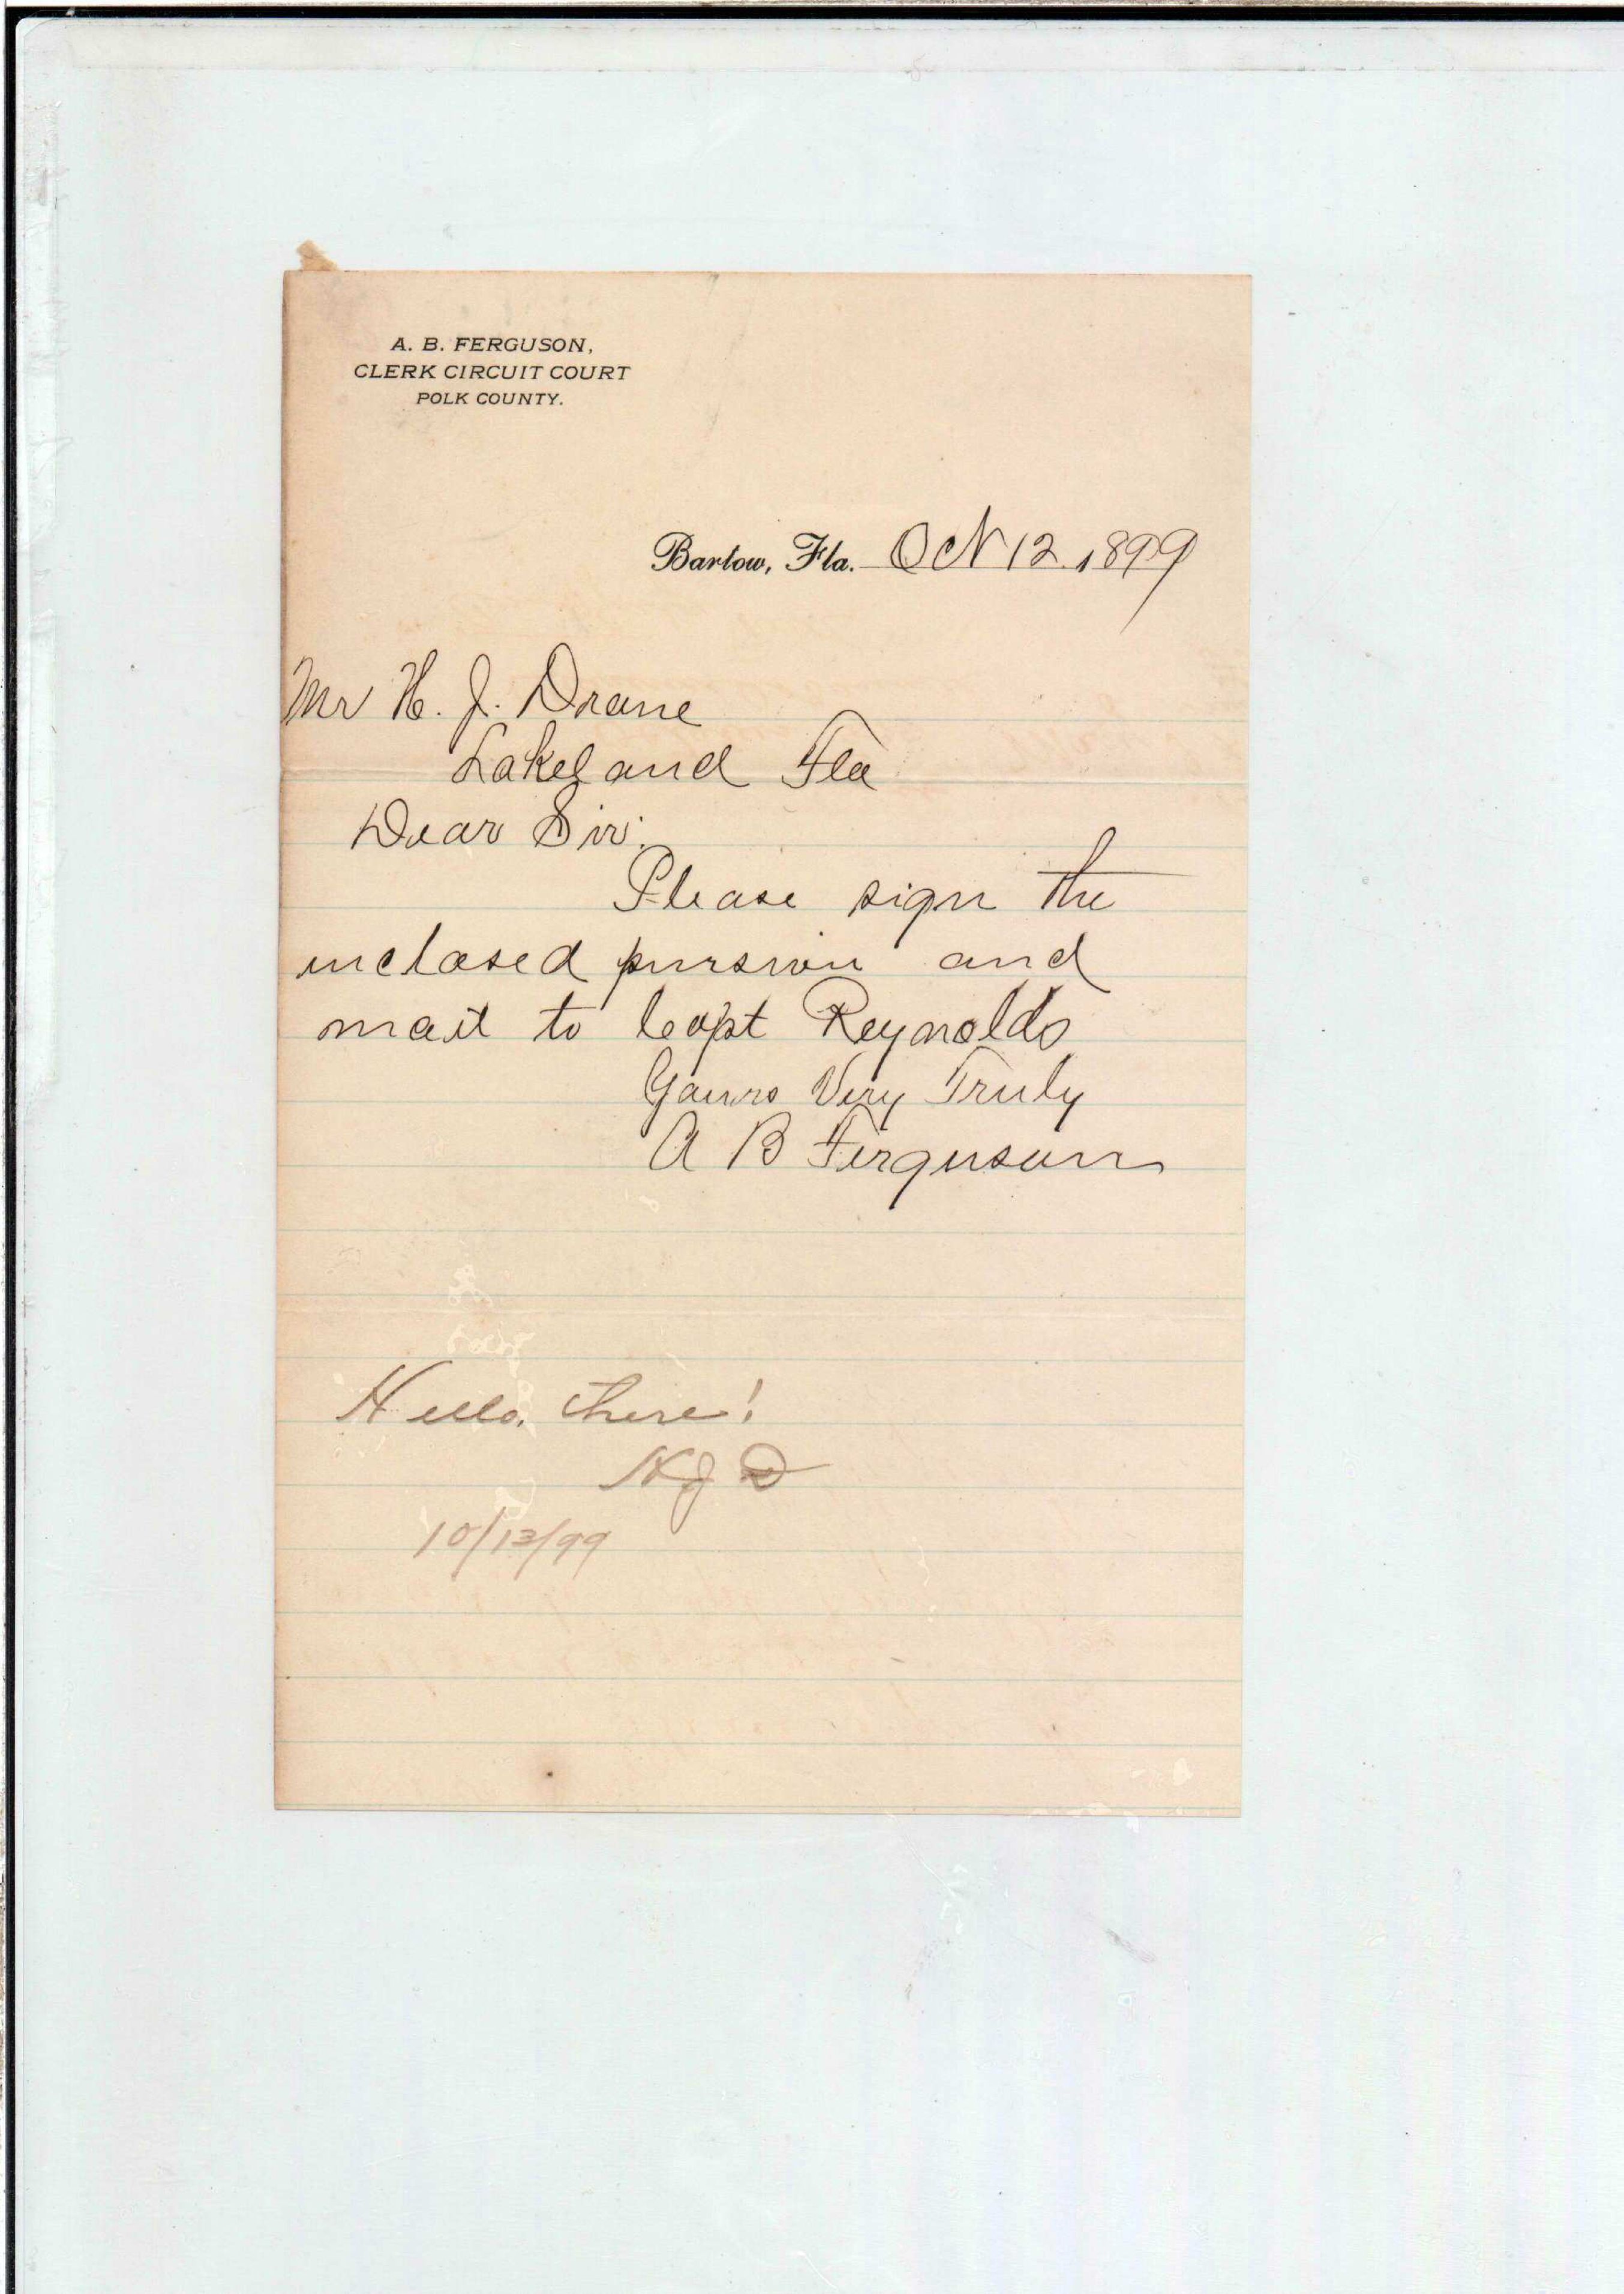 A. B. FERGUSON,
CLERK CIRCUIT COURT
POLK COUNTY.
Bartow, Fla. Oct 12 1899
Mr H. J. Drane
Lakeland Fla
Dear Sir:
Please sign the
inclosed pension and
mail to Capt Reynolds
Yours Very Truly
A B Ferguson
Hello, there!
HJD
10/13/99